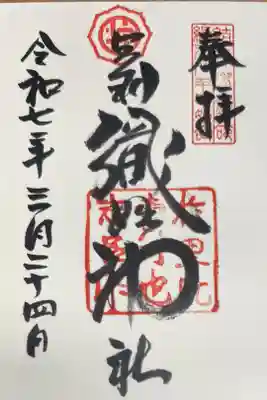 奉拝
足利織姫神社
令和七年三月二十四日